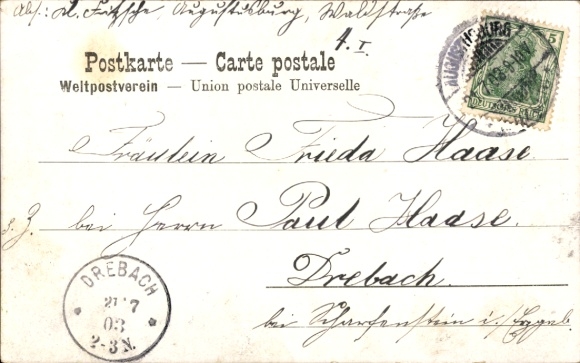 Abs.: M. Fritzsche, Augustusburg, Waldstraße
4. I.
Postkarte — Carte postale
Weltpostverein — Union postale Universelle
AUGUSTUSBURG
5
DEUTSCHES REICH
Fräulein Frieda Haase
z. Z. bei Herrn Paul Haase.
Drebach.
bei Scharfenstein i./Erzgeb.
DREBACH
21 7
03
2-3 N.